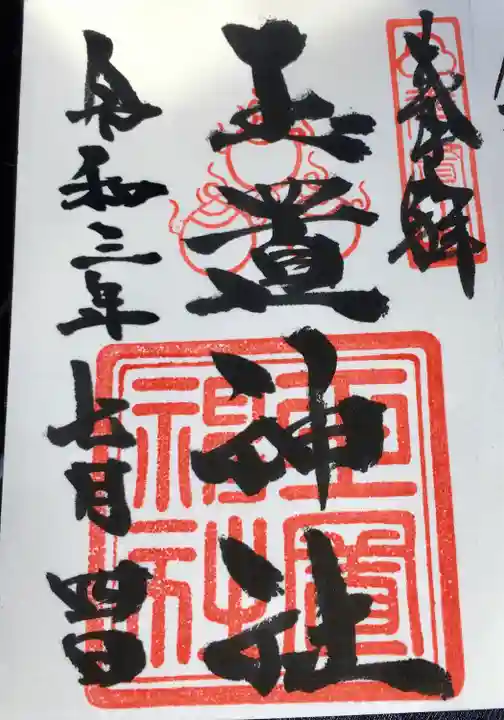 奉拝
玉置神社
令和三年七月四日
玉置神社